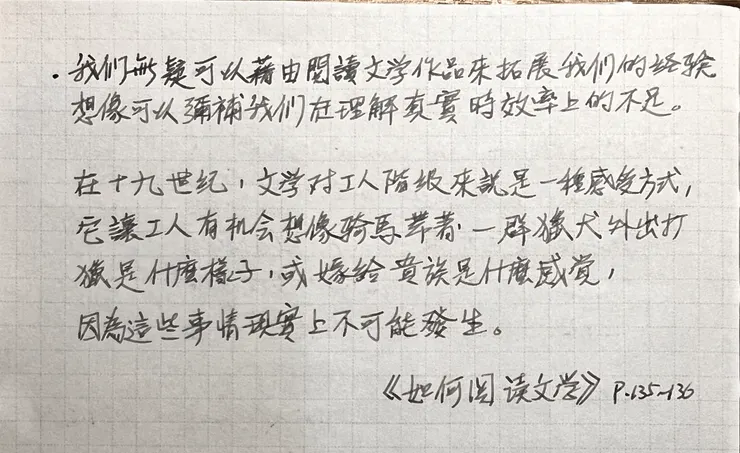 · 我们無疑可以藉由閱讀文学作品來拓展我们的经验
想像可以彌補我们在理解真實時效率上的不足。
在十九世纪，文学对工人階级來説是一種感受方式，
它讓工人有机会想像骑马帶著一群獵犬外出打
獵是什麼樣子，或嫁給貴族是什麼感觉，
因為這些事情現實上不可能發生。
《如何阅读文学》 P.135-136